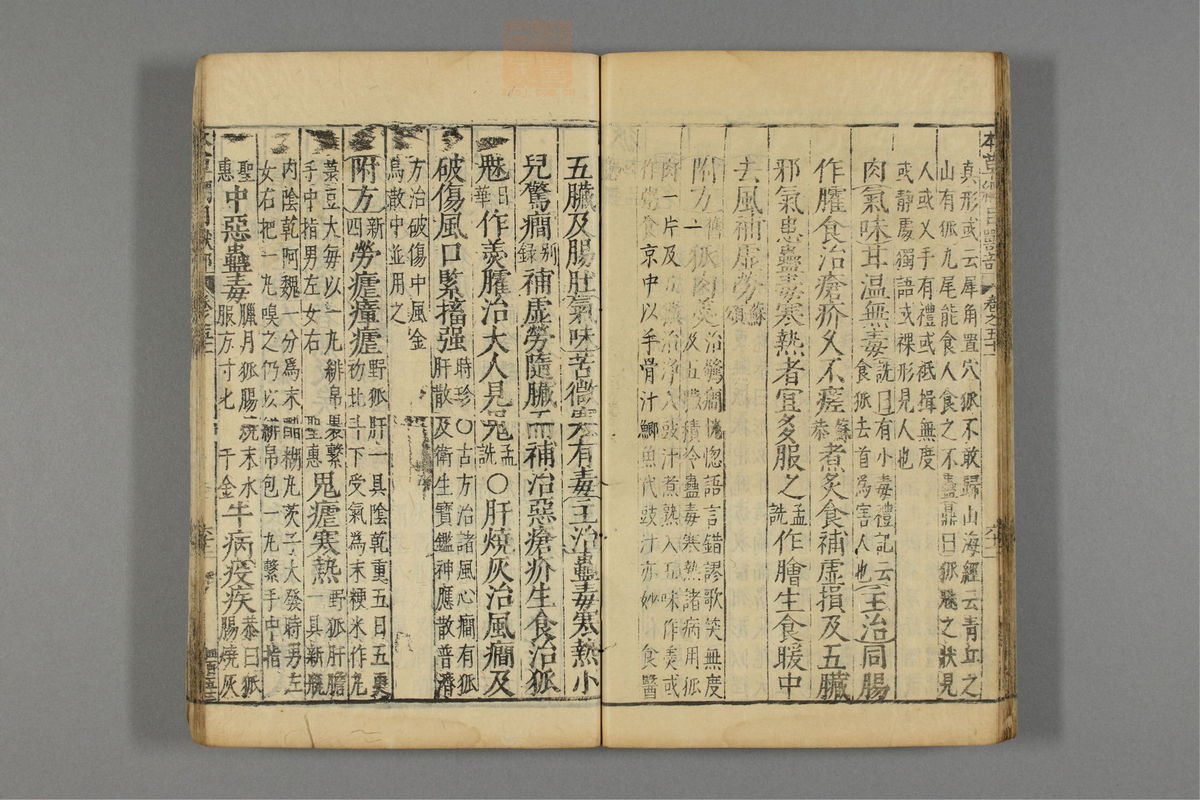 本草綱目獸部 卷之五十一
真形或云犀角置穴狐不敢歸山海經云青丘之
山有狐九尾能食人食之不蠱鼎曰狐魅之狀見
人或叉手有禮或祗揖無度
或靜處獨語或裸形見人也
肉氣味甘温無毒詵曰有小毒禮記云
食狐去首爲害人也主治同腸
作臛食治瘡疥久不瘥蘇恭煮炙食補虛損及五臟
邪氣患蠱毒寒熱者宜多服之孟詵作膾生食暖中
去風補虛勞蘇頌
附方舊一狐肉羮治驚癎恍惚語言錯謬歌笑無度
及五臟積冷蠱毒寒熱諸病用狐
肉一片及五臟治淨入豉汁煮熟入五味作羮或
作粥食京中以羊骨汁鯽魚代豉汁亦妙食醫
五臟及腸肚氣味苦微寒有毒主治蠱毒寒熱小
兒驚癎別錄補虛勞隨臟而補治惡瘡疥生食治狐
魅日華作羮臛治大人見鬼孟詵○肝燒灰治風癎及
破傷風口緊搐强時珍○古方治諸風心癎有狐
肝散及衛生寶鑑神應散普濟
方治破傷中風金
烏散中並用之
附方新四勞瘧瘴瘧野狐肝一具陰乾重五日五更
初北斗下受氣爲末粳米作丸
菉豆大每以一丸緋帛裹繫
手中指男左女右聖惠鬼瘧寒熱野狐肝膽
一具新瓶
內陰乾阿魏一分爲末醋糊丸芡子大發時男左
女右把一丸嗅之仍以緋帛包一丸繫手中指
聖
惠中惡蠱毒臘月狐腸燒末水
服方寸匕千金牛病疫疾恭曰狐
腸燒灰